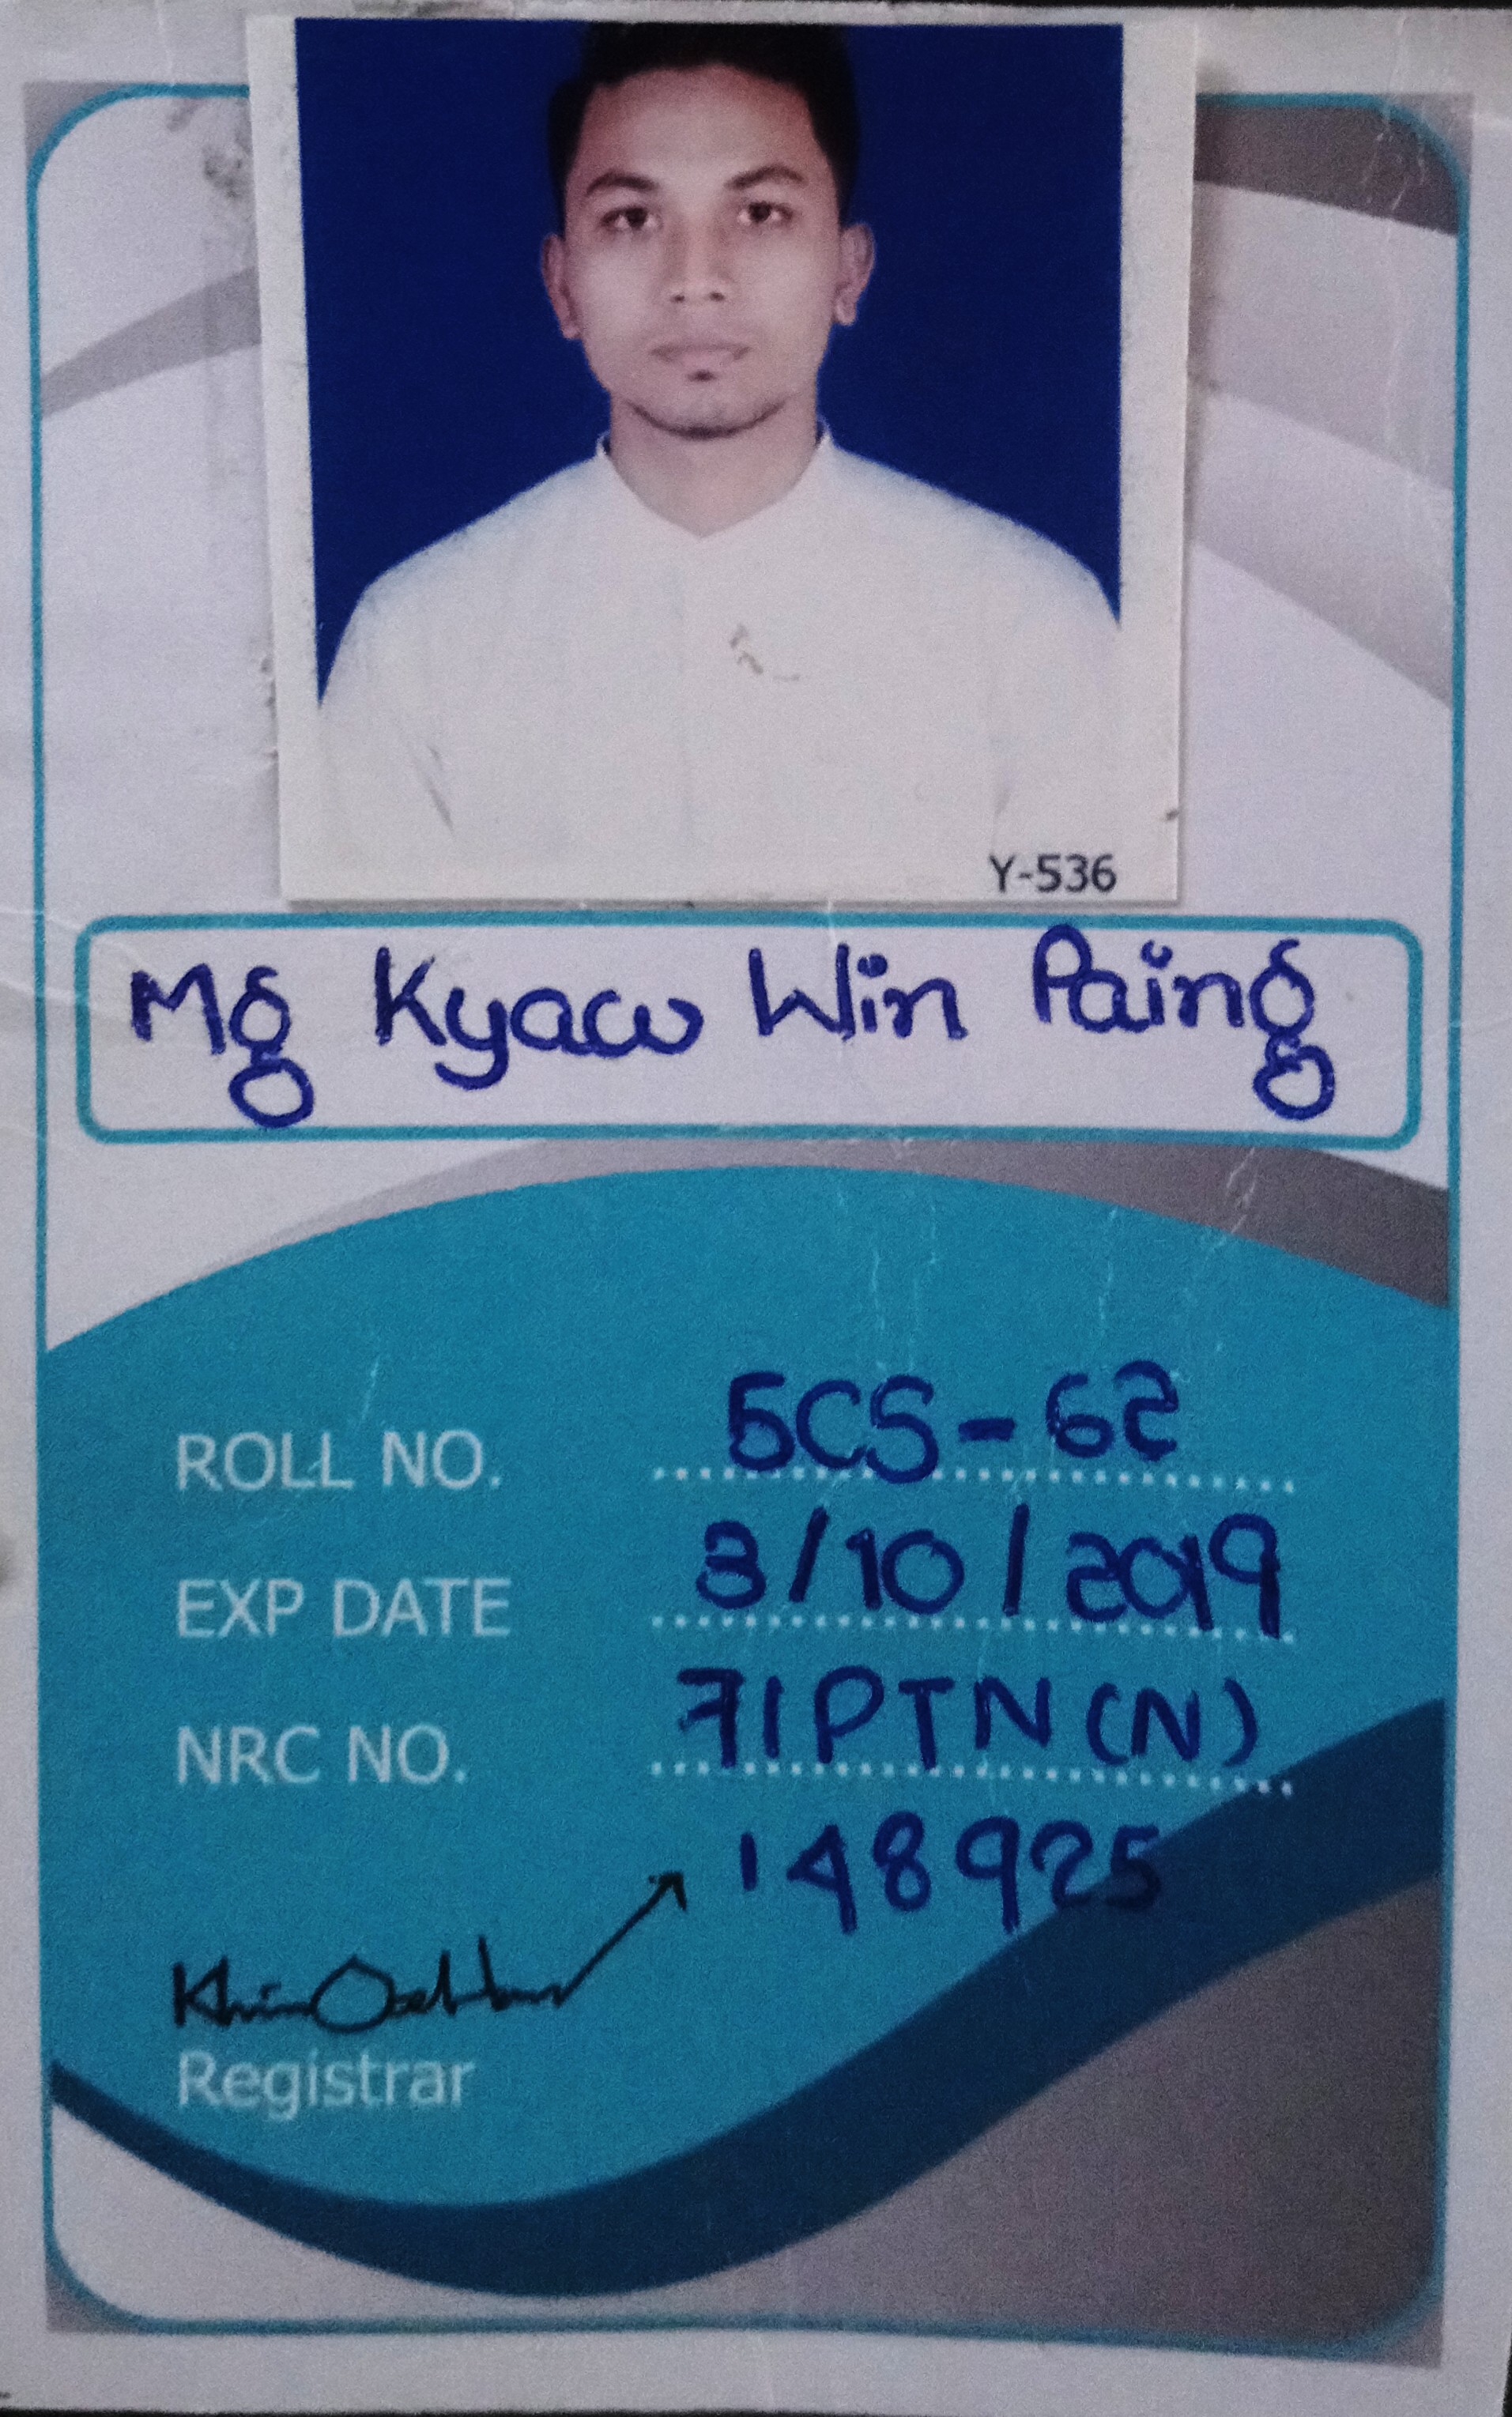 Y-536
Mg Kyaw Win Paing
ROLL NO. 5CS-62
EXP DATE 3/10/2019
NRC NO. 7/PTN(N)
148925
Registrar